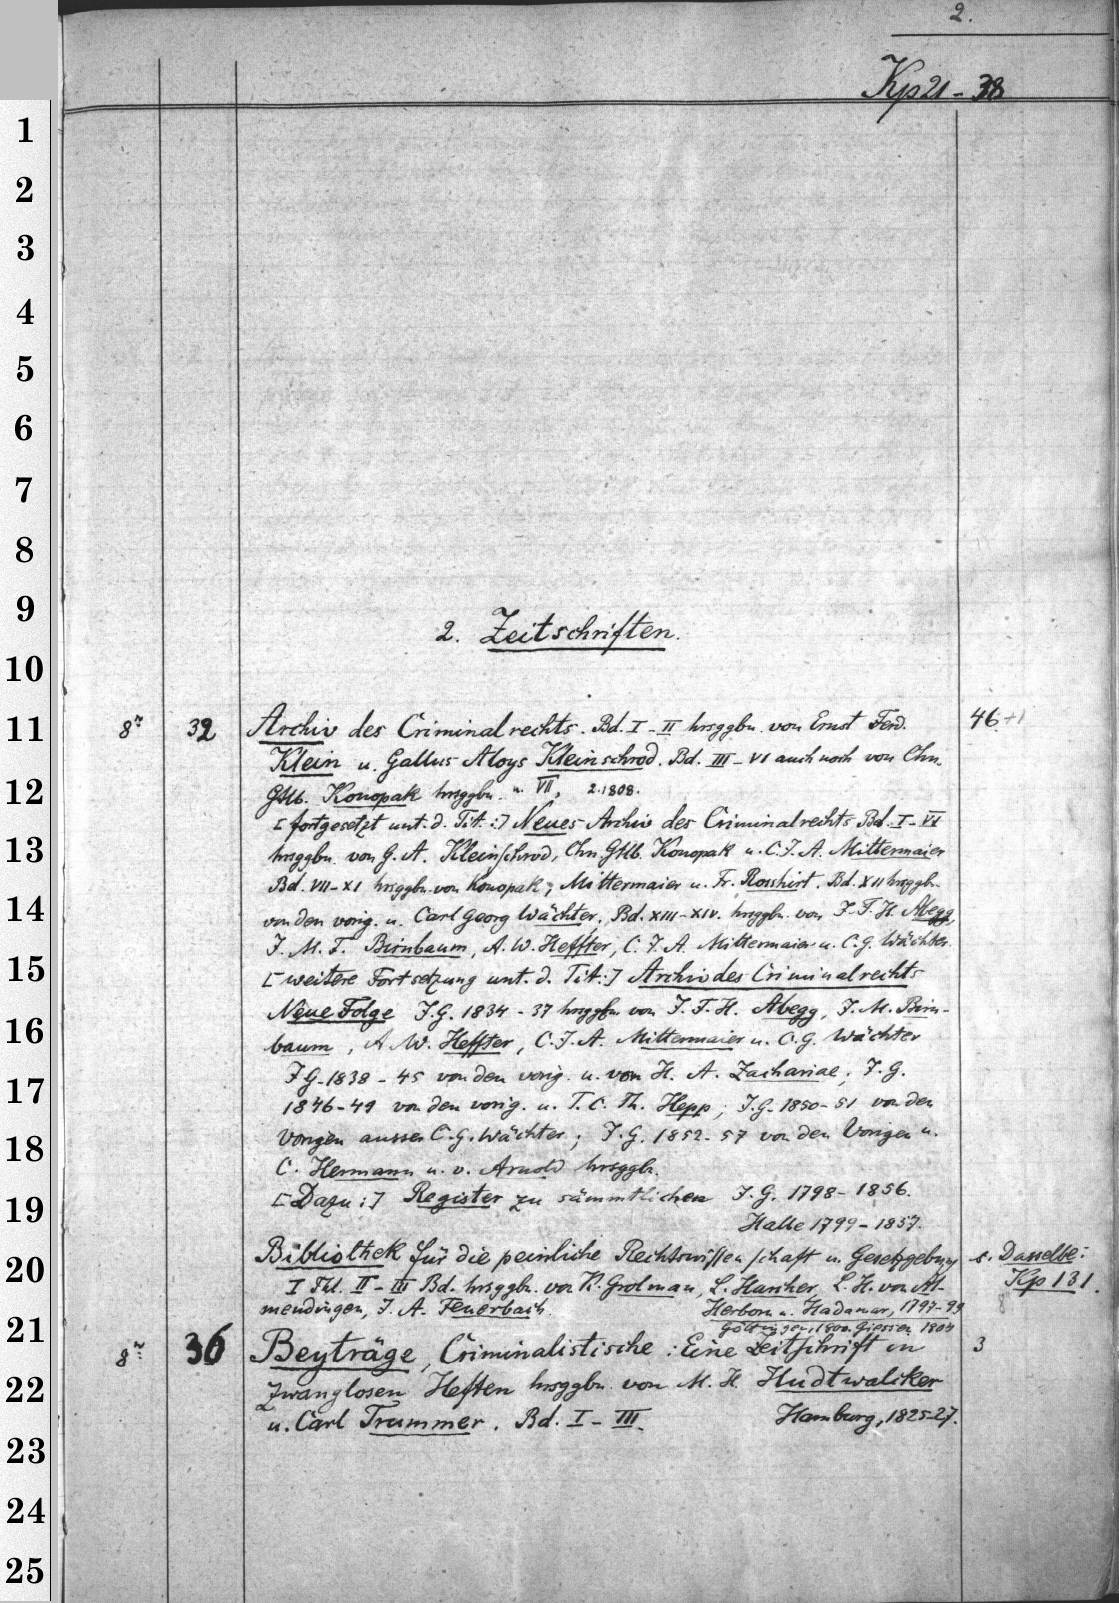 2.
Kp 21 - 38
2. Zeitschriften.
8° 32 Archiv des Criminalrechts. Bd. I - II hrsggbn. von Ernst Ferd. 46 +1
Klein u. Gallus Aloys Kleinschrod. Bd. III - VI auch noch von Chn.
Gttlb. Konopak hrsggbn. u. VII, 2. 1808.
[fortgesetzt unt. d. Tit.:] Neues Archiv des Criminalrechts Bd. I - VI
hrsggbn. von G. A. Kleinschrod, Chn. Gttlb. Konopak u. C. J. A. Mittermaier
Bd. VII - XI hrsggbn. von Konopak, Mittermaier u. Fr. Rosshirt. Bd. XII hrsggbn.
von den vorig. u. Carl Georg Wächter, Bd. XIII - XIV. hrsggbn. von J. F. H. Abegg,
J. M. F. Birnbaum, A. W. Heffter, C. J. A. Mittermaier u. C. G. Wächter.
[weitere Fortsetzung unt. d. Tit:] Archiv des Criminalrechts
Neue Folge J.G. 1834 - 37 hrsggbn von J. F. H. Abegg, J. M. Birn-
baum, A W. Heffter, C. J. A. Mittermaier u. C. G. Wächter
J.G. 1838 - 45 von den vorig. u. von H. A. Zachariae; J.G.
1846-49 von den vorig. u. F. C. Th. Hepp; J.G. 1850-51 von den
Vorigen ausser C. G. Wächter; J.G. 1852-57 von den Vorigen u.
C. Hermann u. v. Arnold hrsggbn.
[Dazu:] Register zu sämmtlichen J.G. 1798 - 1856.
Halle 1799 - 1857.
Bibliothek für die peinliche Rechtswissenschaft u. Gesetzgebung s. Dasselbe:
I Thl. II - III Bd. hrsggbn. von K. Grolman, L. Harscher, L. H. von Al- Kp 131.
mendingen, J. A. Feuerbach. Herborn u. Hadamar, 1797-99
Göttingen, 1800. Giessen 1804
8° 36 Beyträge, Criminalistische: Eine Zeitschrift in 3
zwanglosen Heften hrsggbn. von M. H. Hudtwalcker
u. Carl Trummer. Bd. I - III. Hamburg, 1825-27.
1
2
3
4
5
6
7
8
9
10
11
12
13
14
15
16
17
18
19
20
21
22
23
24
25